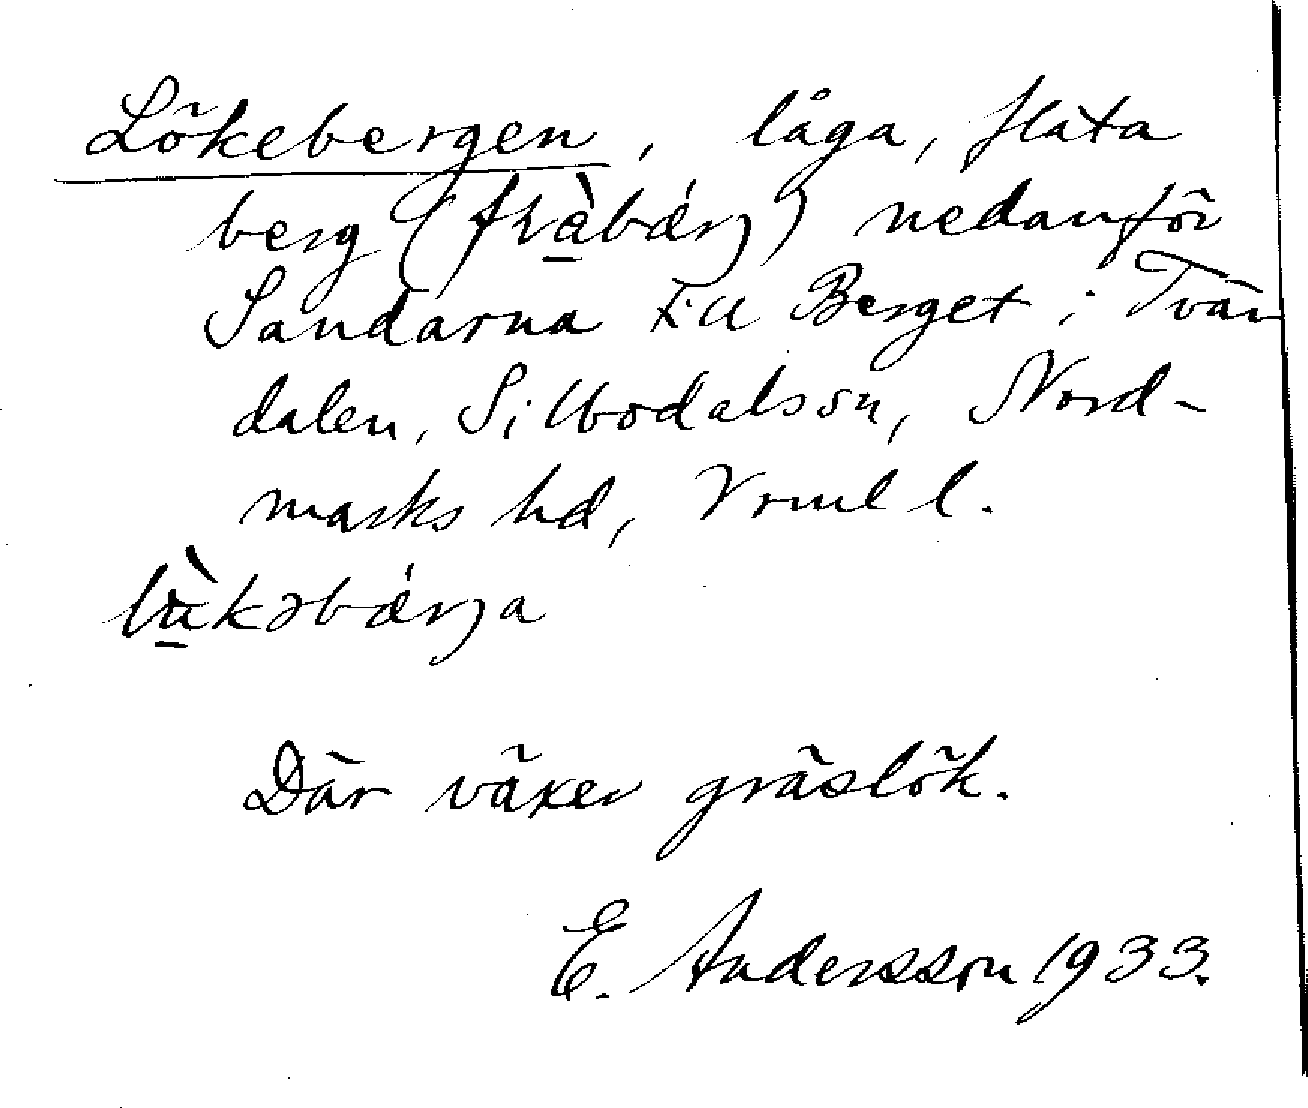 Lökebergen, låga, flata
berg (flàbärj) nedanför
Sandarna till Berget i Tvär
dalen, Silbodals sn, Nord-
marks hd, Vrml l.
lùkəbärja
Där växer gräslök.
E. Andersson 1933.